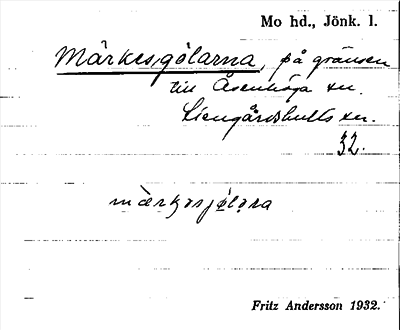 Mo hd., Jönk. l.
Märkesgölarna, på gränsen
till Åsenhöga sn.
Liengårdshults sn.
32.
märkəsjölara
Fritz Andersson 1932.